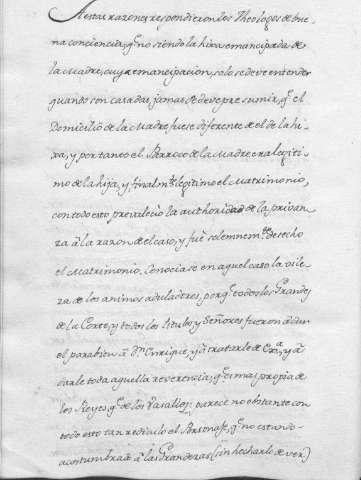 A estas razones respondieron los Theologos de bue-
na conciencia, q.e no siendo la hixa emancipada de
la Madre, cuya emancipacion, solo se deve entender
quando son casadas, jamas se deve presumir, q.e el
Domicilio de la Madre fuese diferente de el de la hi-
xa, y por tanto el Parroco de la Madre era legiti-
mo de la hija, y finalm.te legitimo el Matrimonio,
con todo esto prevalecio la authoridad de la privan-
za â la razon de el caso, y fuè solemnem.te deshecho
el Matrimonio. Conociase en aquel caso la vile-
za de los animos aduladores, porq.e todos los Grandes
de la Corte, y todos los titulos y Señores fueron â dar
el parabien â D.n Enrrique, y â tratarle de Ex.a, y â
darle toda aquella reverencia, q.e es mas propia de
los Reyes, q.e de los Vasallos; parece no obstante con
todo esto tan rediculo el Personaje, q.e no estando
acostumbrado â las Grandezas (sin hecharlo de ver)